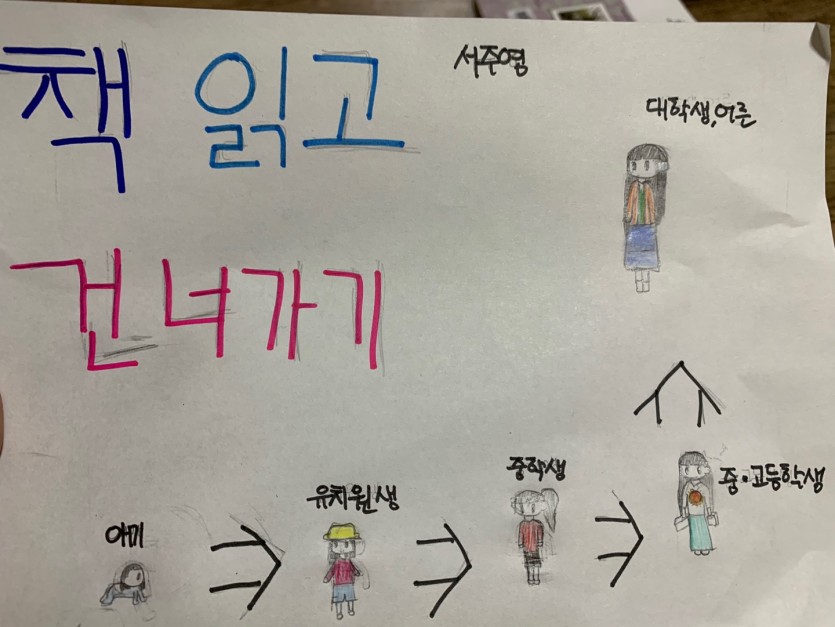 책 읽고
서주영
건녀가기
대학생,어른
아기
유치원생
중학생
중·고등학생